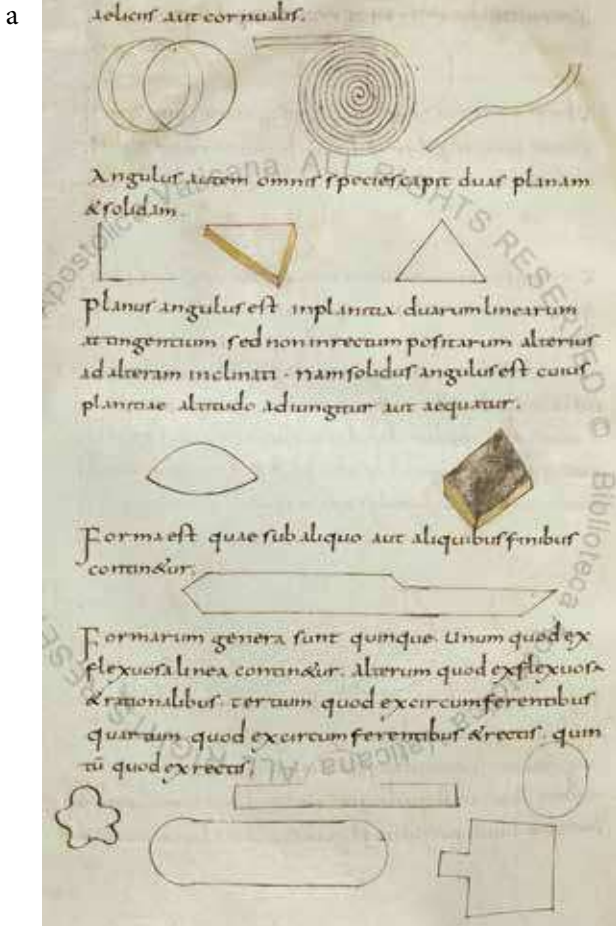 a
aelicus aut cornualis.
Angulus autem omnis species capit duas planam
& solidam.
Planus angulus est inplanitia duarum linearum
attingentium sed non inrectum positarum alterius
ad alteram inclinati · nam solidus angulus est cuius
planitiae altitudo adiungitur aut aequatur.
Forma est quae sub aliquo aut aliquibus finibus
contin&ur.
Formarum genera sunt quinque. Unum quod ex
flexuosa linea contin&ur. alterum quod ex flexuosa
& rationalibus. tertium quod ex circumferentibus
quartum quod ex circumferentibus & rectis. quin
tū quod ex rectis.
ALL RIGHTS RESERVED © Biblioteca Apostolica Vaticana